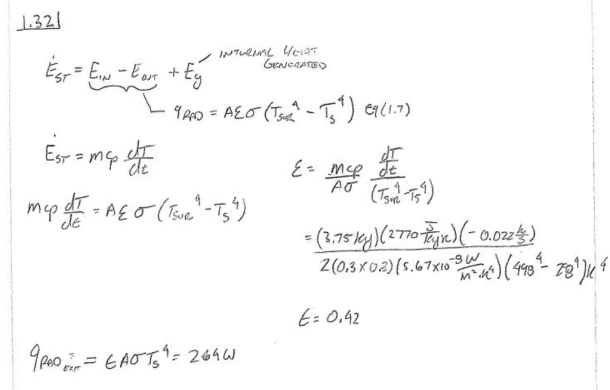 1.32
INTERNAL HEAT GENERATED
Ė_ST = E_IN - E_OUT + E_g
q_RAD = AEσ(T_SUR^4 - T_S^4) eq(1.7)
Ė_ST = mcp dT/dt
mcp dT/dt = AEσ(T_SUR^4 - T_S^4)
ε = mcp/Aσ dT/dt/(T_SUR^4 - T_S^4)
= (3.75 kg)(2770 J/kgK)(-0.022 K/S)
2(0.3x0.3)(5.67x10^-8 W/m²·K^4)(498^4 - 298^4)K^4
ε = 0.42
q_RAD = εAσT_S^4 = 264W